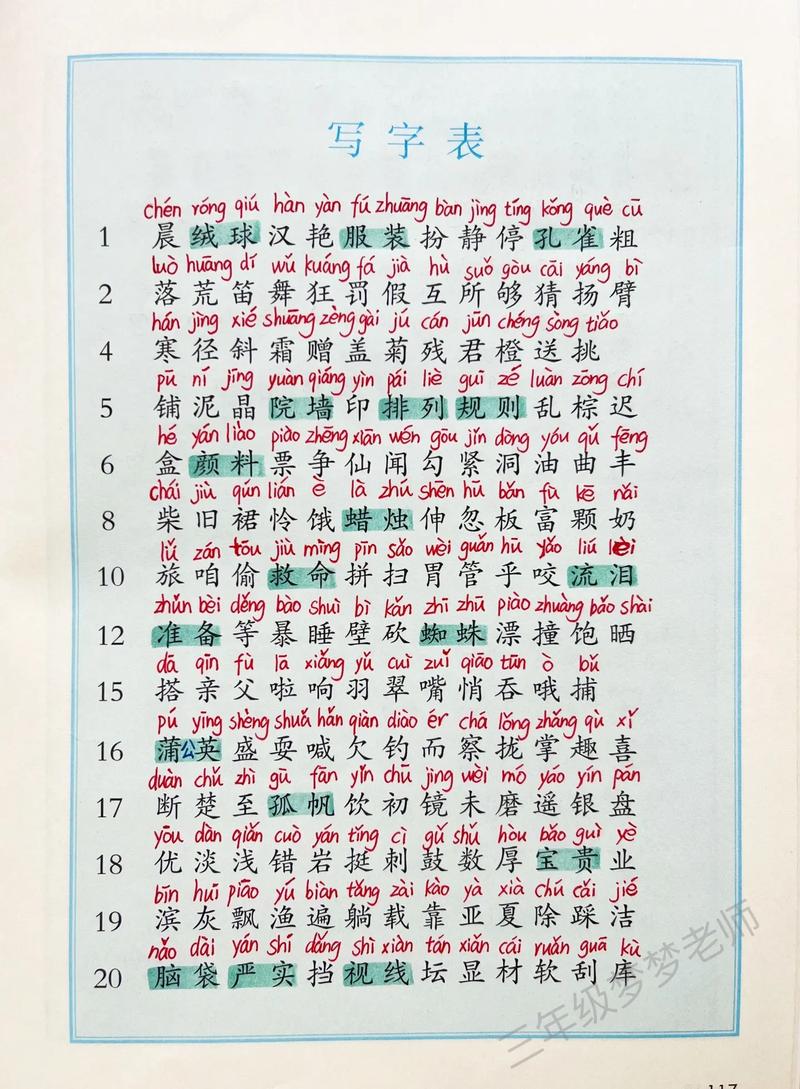 写字表
chén róng qiú hàn yàn fú zhuāng bàn jìng tíng kǒng què cū
1 晨绒球汉艳服装扮静停孔雀粗
luò huāng dí wǔ kuáng fá jià hù suǒ gòu cāi yáng bì
2 落荒笛舞狂罚假互所够猜扬臂
hán jìng xié shuāng zèng gài jú cán jūn chéng sòng tiǎo
4 寒径斜霜赠盖菊残君橙送挑
pū ní jīng yuàn qiáng yìn pái liè guī zé luàn zōng chí
5 铺泥晶院墙印排列规则乱棕迟
hé yán liào piào zhēng xiān wén gōu jǐn dòng yóu qǔ fēng
6 盒颜料票争仙闻勾紧洞油曲丰
chái jiù qún lián è là zhú shēn hū bǎn fù kē nǎi
8 柴旧裙怜饿蜡烛伸忽板富颗奶
lǚ zán tōu jiù mìng pīn sǎo wèi guǎn hū yǎo liú lèi
10 旅咱偷救命拼扫胃管乎咬流泪
zhǔn bèi děng bào shuì bì kǎn zhī zhū piào zhuàng bǎo shài
12 准备等暴睡壁砍蜘蛛漂撞饱晒
dā qīn fù lā xiǎng yǔ cuì zuǐ qiāo tūn ò bǔ
15 搭亲父啦响羽翠嘴悄吞哦捕
pú yīng shèng shuǎ hǎn qiàn diào ér chá lǒng zhǎng qù xǐ
16 蒲公英盛耍喊欠钓而察拢掌趣喜
duàn chǔ zhì gū fān yǐn chū jìng wèi mó yáo yín pán
17 断楚至孤帆饮初镜未磨遥银盘
yōu dàn qiǎn cuò yán tǐng cì gǔ shǔ hòu bǎo guì yè
18 优淡浅错岩挺刺鼓数厚宝贵业
bīn huī piāo yú biàn tǎng zài kào yà xià chú cǎi jié
19 滨灰飘渔遍躺载靠亚夏除踩洁
nǎo dài yán shí dǎng shì xiàn tán xiǎn cái ruǎn guā kù
20 脑袋严实挡视线坛显材软刮库
三年级梦梦老师
117